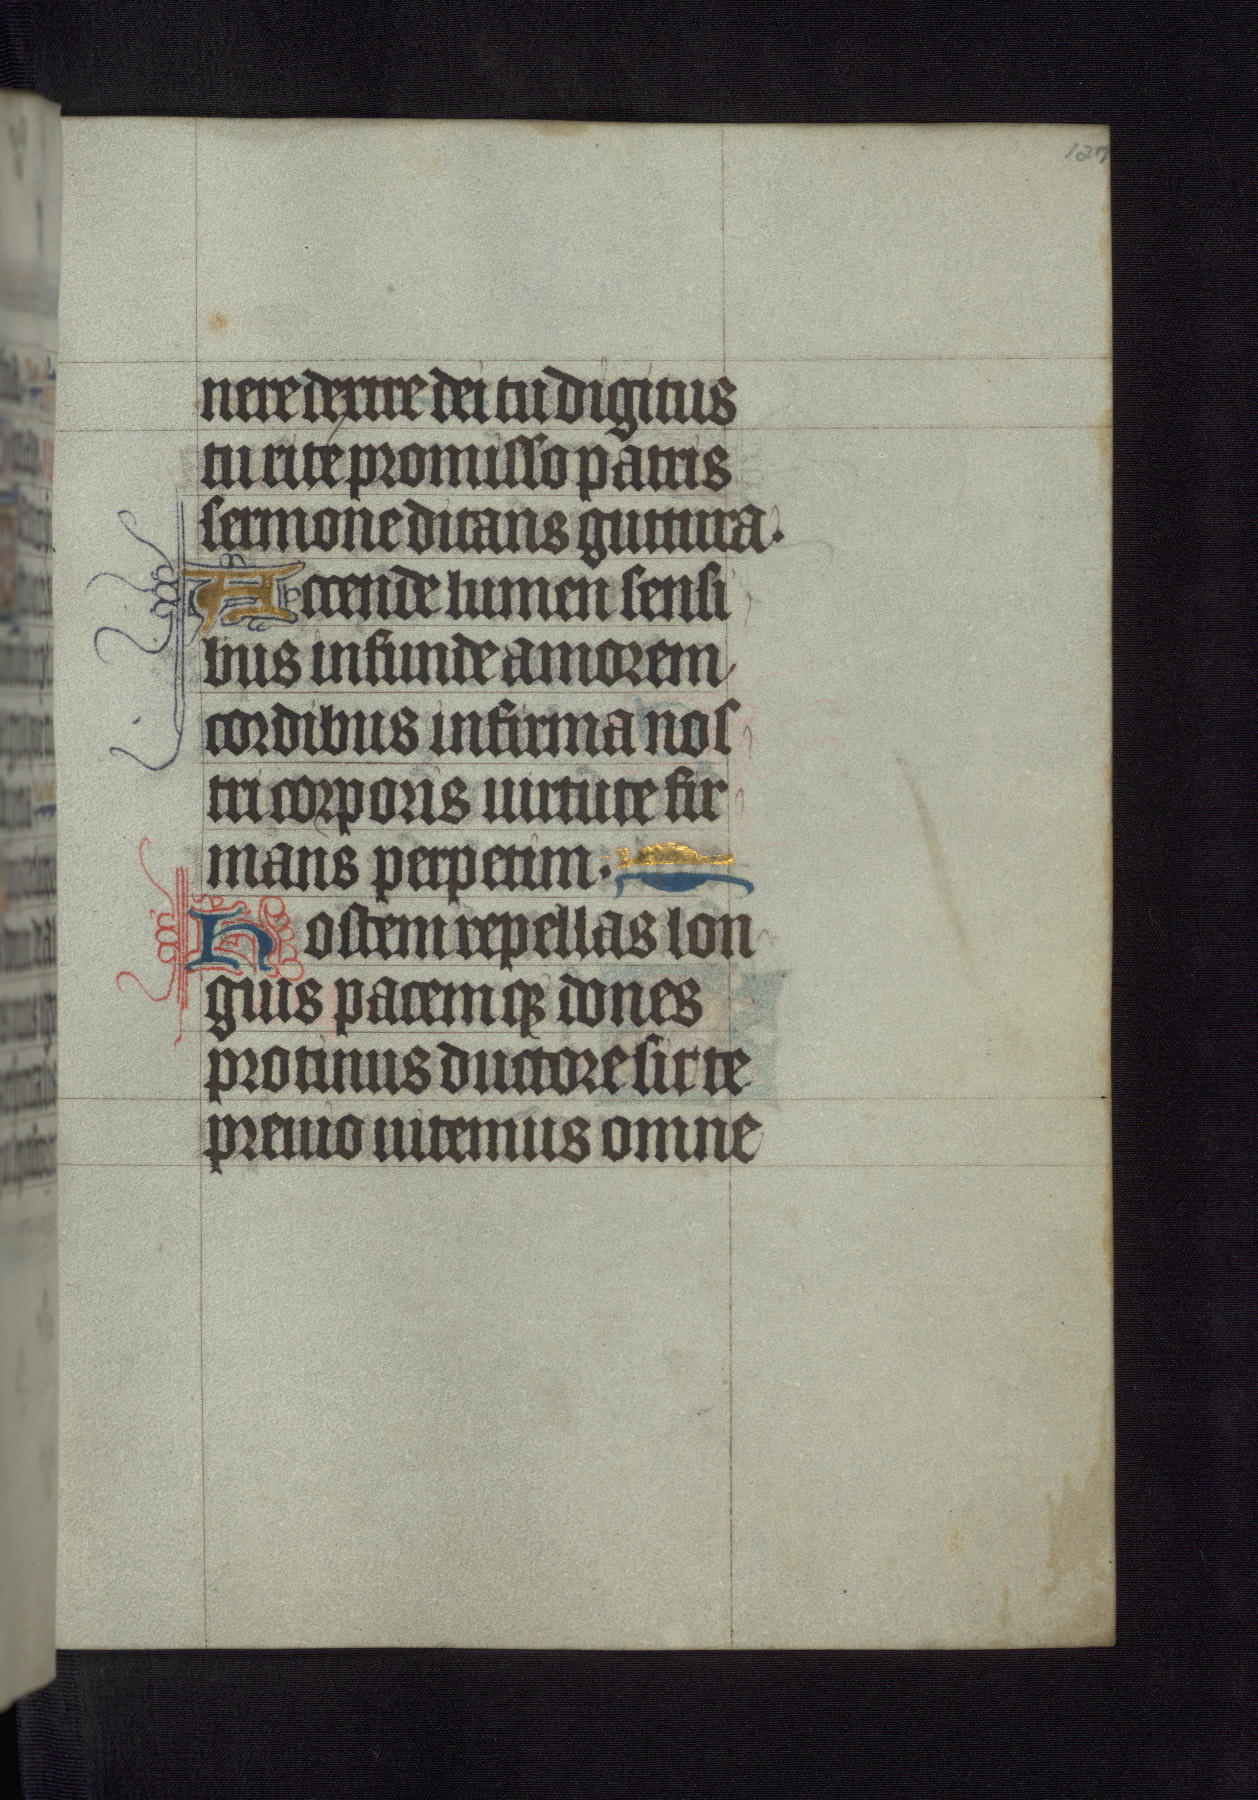 127
nere dextre dei tu digitus
tu rite promisso patris
sermone ditans guttura.
Accende lumen sensi
bus infunde amorem
cordibus infirma nos
tri corporis uirtute fir
mans perpetim.
Hostem repellas lon
gius pacemqꝫ dones
protinus ductore sic te
preuio uitemus omne